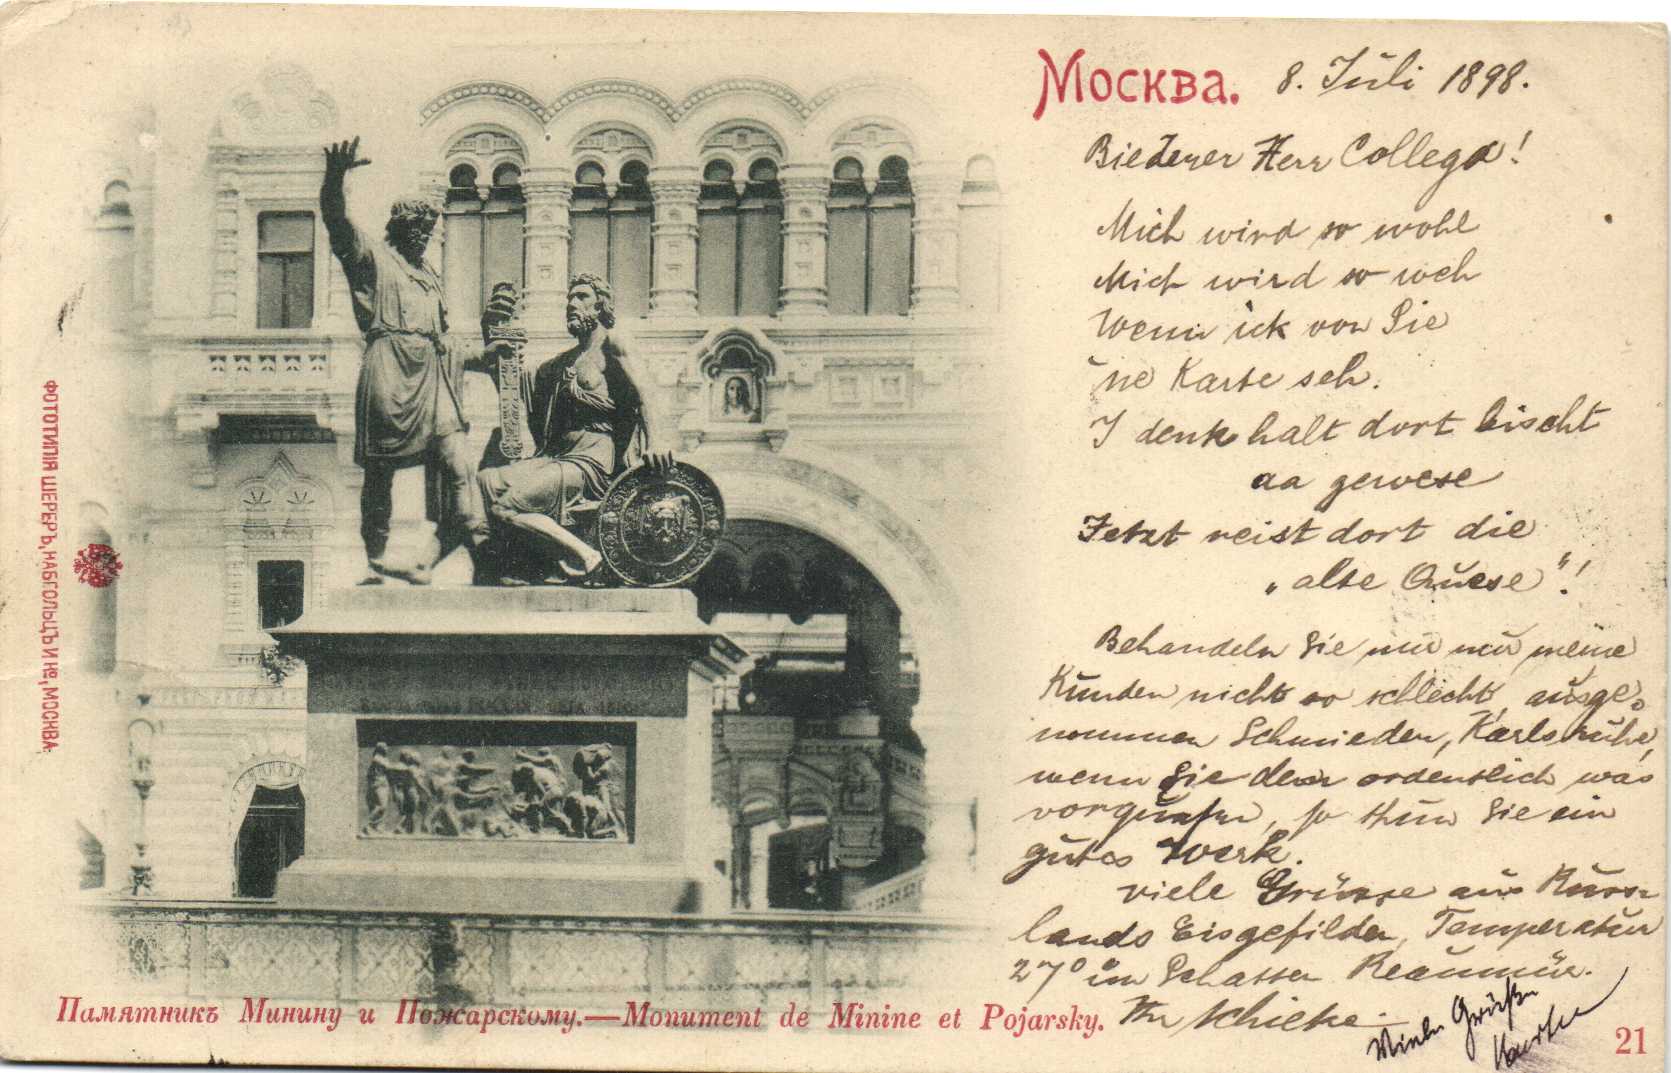 Москва. 8. Juli 1898.
Biederer Herr Collega!
Mich wird so wohl
Mich wird so weh
Wenn ick von Sie
'ne Karte seh.
I denk halt dort bischt
aa gewese
Jetzt reist dort die
„alte Quese“!
Behandeln Sie mir nur meine
Kunden nicht so schlecht, ausge-
nommen Schmieder, Karlsruhe,
wenn Sie dem ordentlich was
so thun Sie ein
gutes Werk.
viele Grüsse aus Russ-
lands Eisgefilden, Temperatur
27° im Schatten Reaumür.
Ihr Schicke.
Viele Grüße
Памятникъ Минину и Пожарскому.—Monument de Minine et Pojarsky.
21
ФОТОТИПІЯ ШЕРЕРЪ, НАБГОЛЬЦЪ И Кº, МОСКВА.